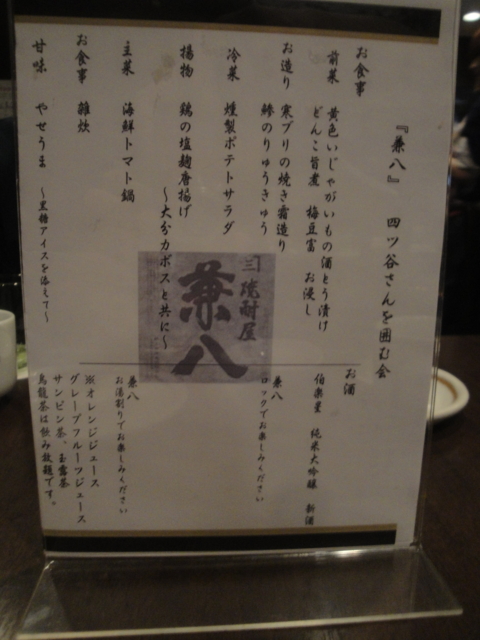 『兼八』 四ツ谷さんを囲む会
お食事
前菜 黄色いじゃがいもの酒とう漬け
どんこ旨煮 梅豆富 お浸し
お造り 寒ブリの焼き霜造り
鯵のりゅうきゅう
冷菜 燻製ポテトサラダ
揚物 鶏の塩麹唐揚げ
～大分カボスと共に～
主菜 海鮮トマト鍋
お食事 雑炊
甘味 やせうま ～黒糖アイスを添えて～
お酒
伯楽星 純米大吟醸 新酒
兼八
ロックでお楽しみください
兼八
お湯割りでお楽しみください
※オレンジジュース
グレープフルーツジュース
サンピン茶、玉露茶
烏龍茶は飲み放題です。
三 焼耐屋
兼八